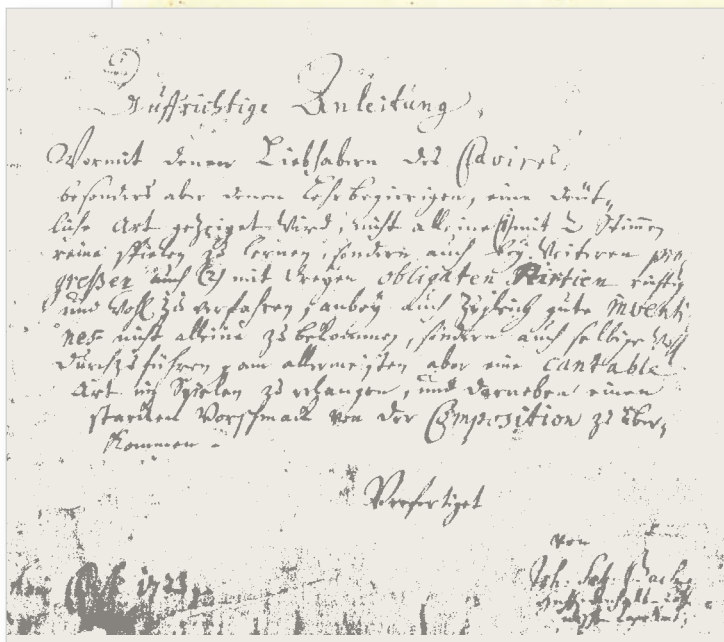 Auffrichtige Anleitung,
Wormit denen Liebhabern des Clavires,
besonders aber denen Lehrbegierigen, eine deüt-
liche Art gezeiget wird, nicht alleine (1) mit 2 Stimmen
reine spielen zu lernen, sondern auch bey weiteren pro-
greßen auch (2) mit dreyen obligaten Partien richtig
und wohl zu verfahren, anbey auch zugleich gute inventi
nes nicht alleine zu bekommen, sondern auch selbige wohl
durchzuführen, am allermeisten aber eine cantable
Art im Spielen zu erlangen, und darneben einen
starcken Vorschmack von der Composition zu über-
kommen.
Verfertiget
von
Joh: Seb: Bach
1723.